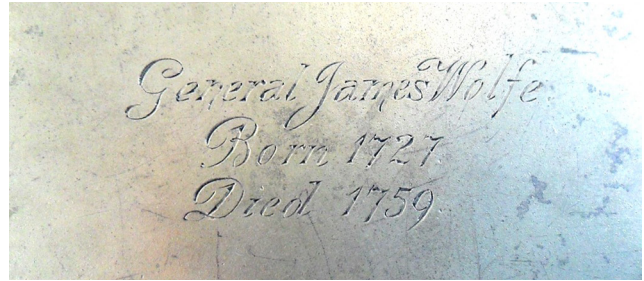 General James Wolfe
Born 1727.
Died 1759.